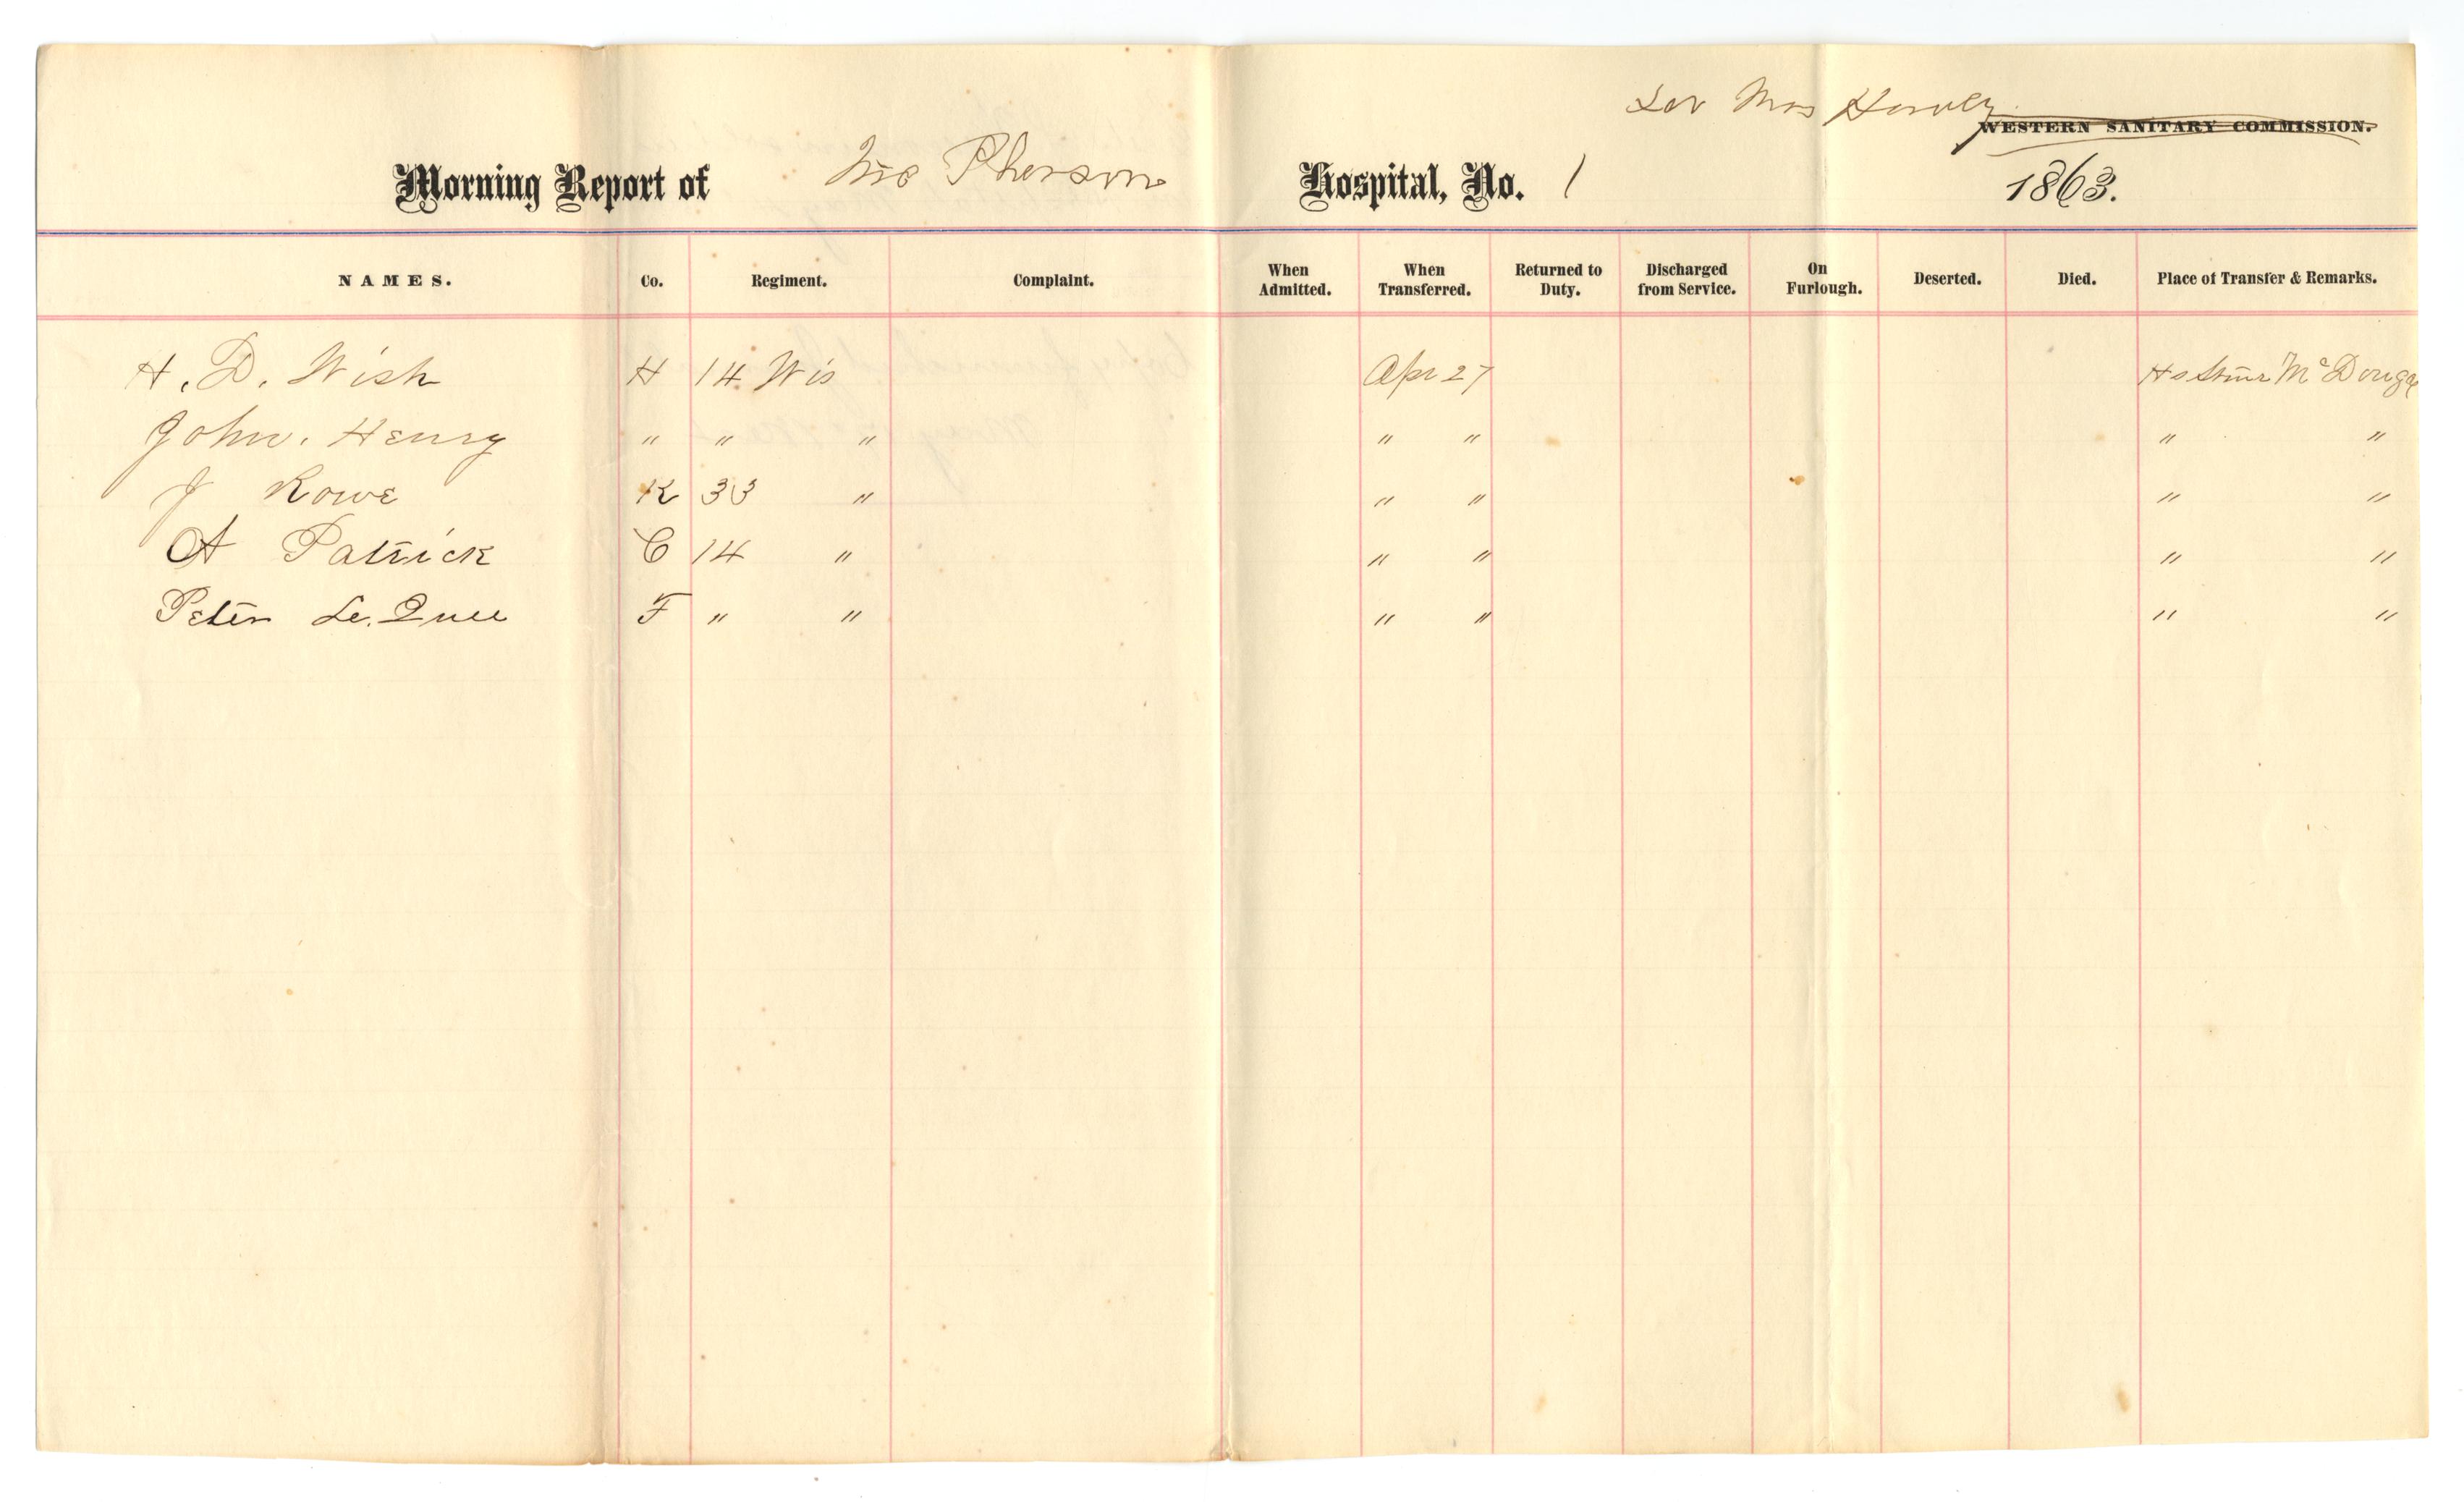 For Mrs Harvey
WESTERN SANITARY COMMISSION.
Morning Report of Mc Pherson Hospital, No. 1 1863.
NAMES. Co. Regiment. Complaint. When Admitted. When Transferred. Returned to Duty. Discharged from Service. On Furlough. Deserted. Died. Place of Transfer & Remarks.
H. D. Wish H 14 Wis Apr 27 Ho Stmr McDouga
John. Henry " " " " " " "
J Rowe K 33 " " " " "
A Patrick C 14 " " " " "
Peter Le. Quee F " " " " " "